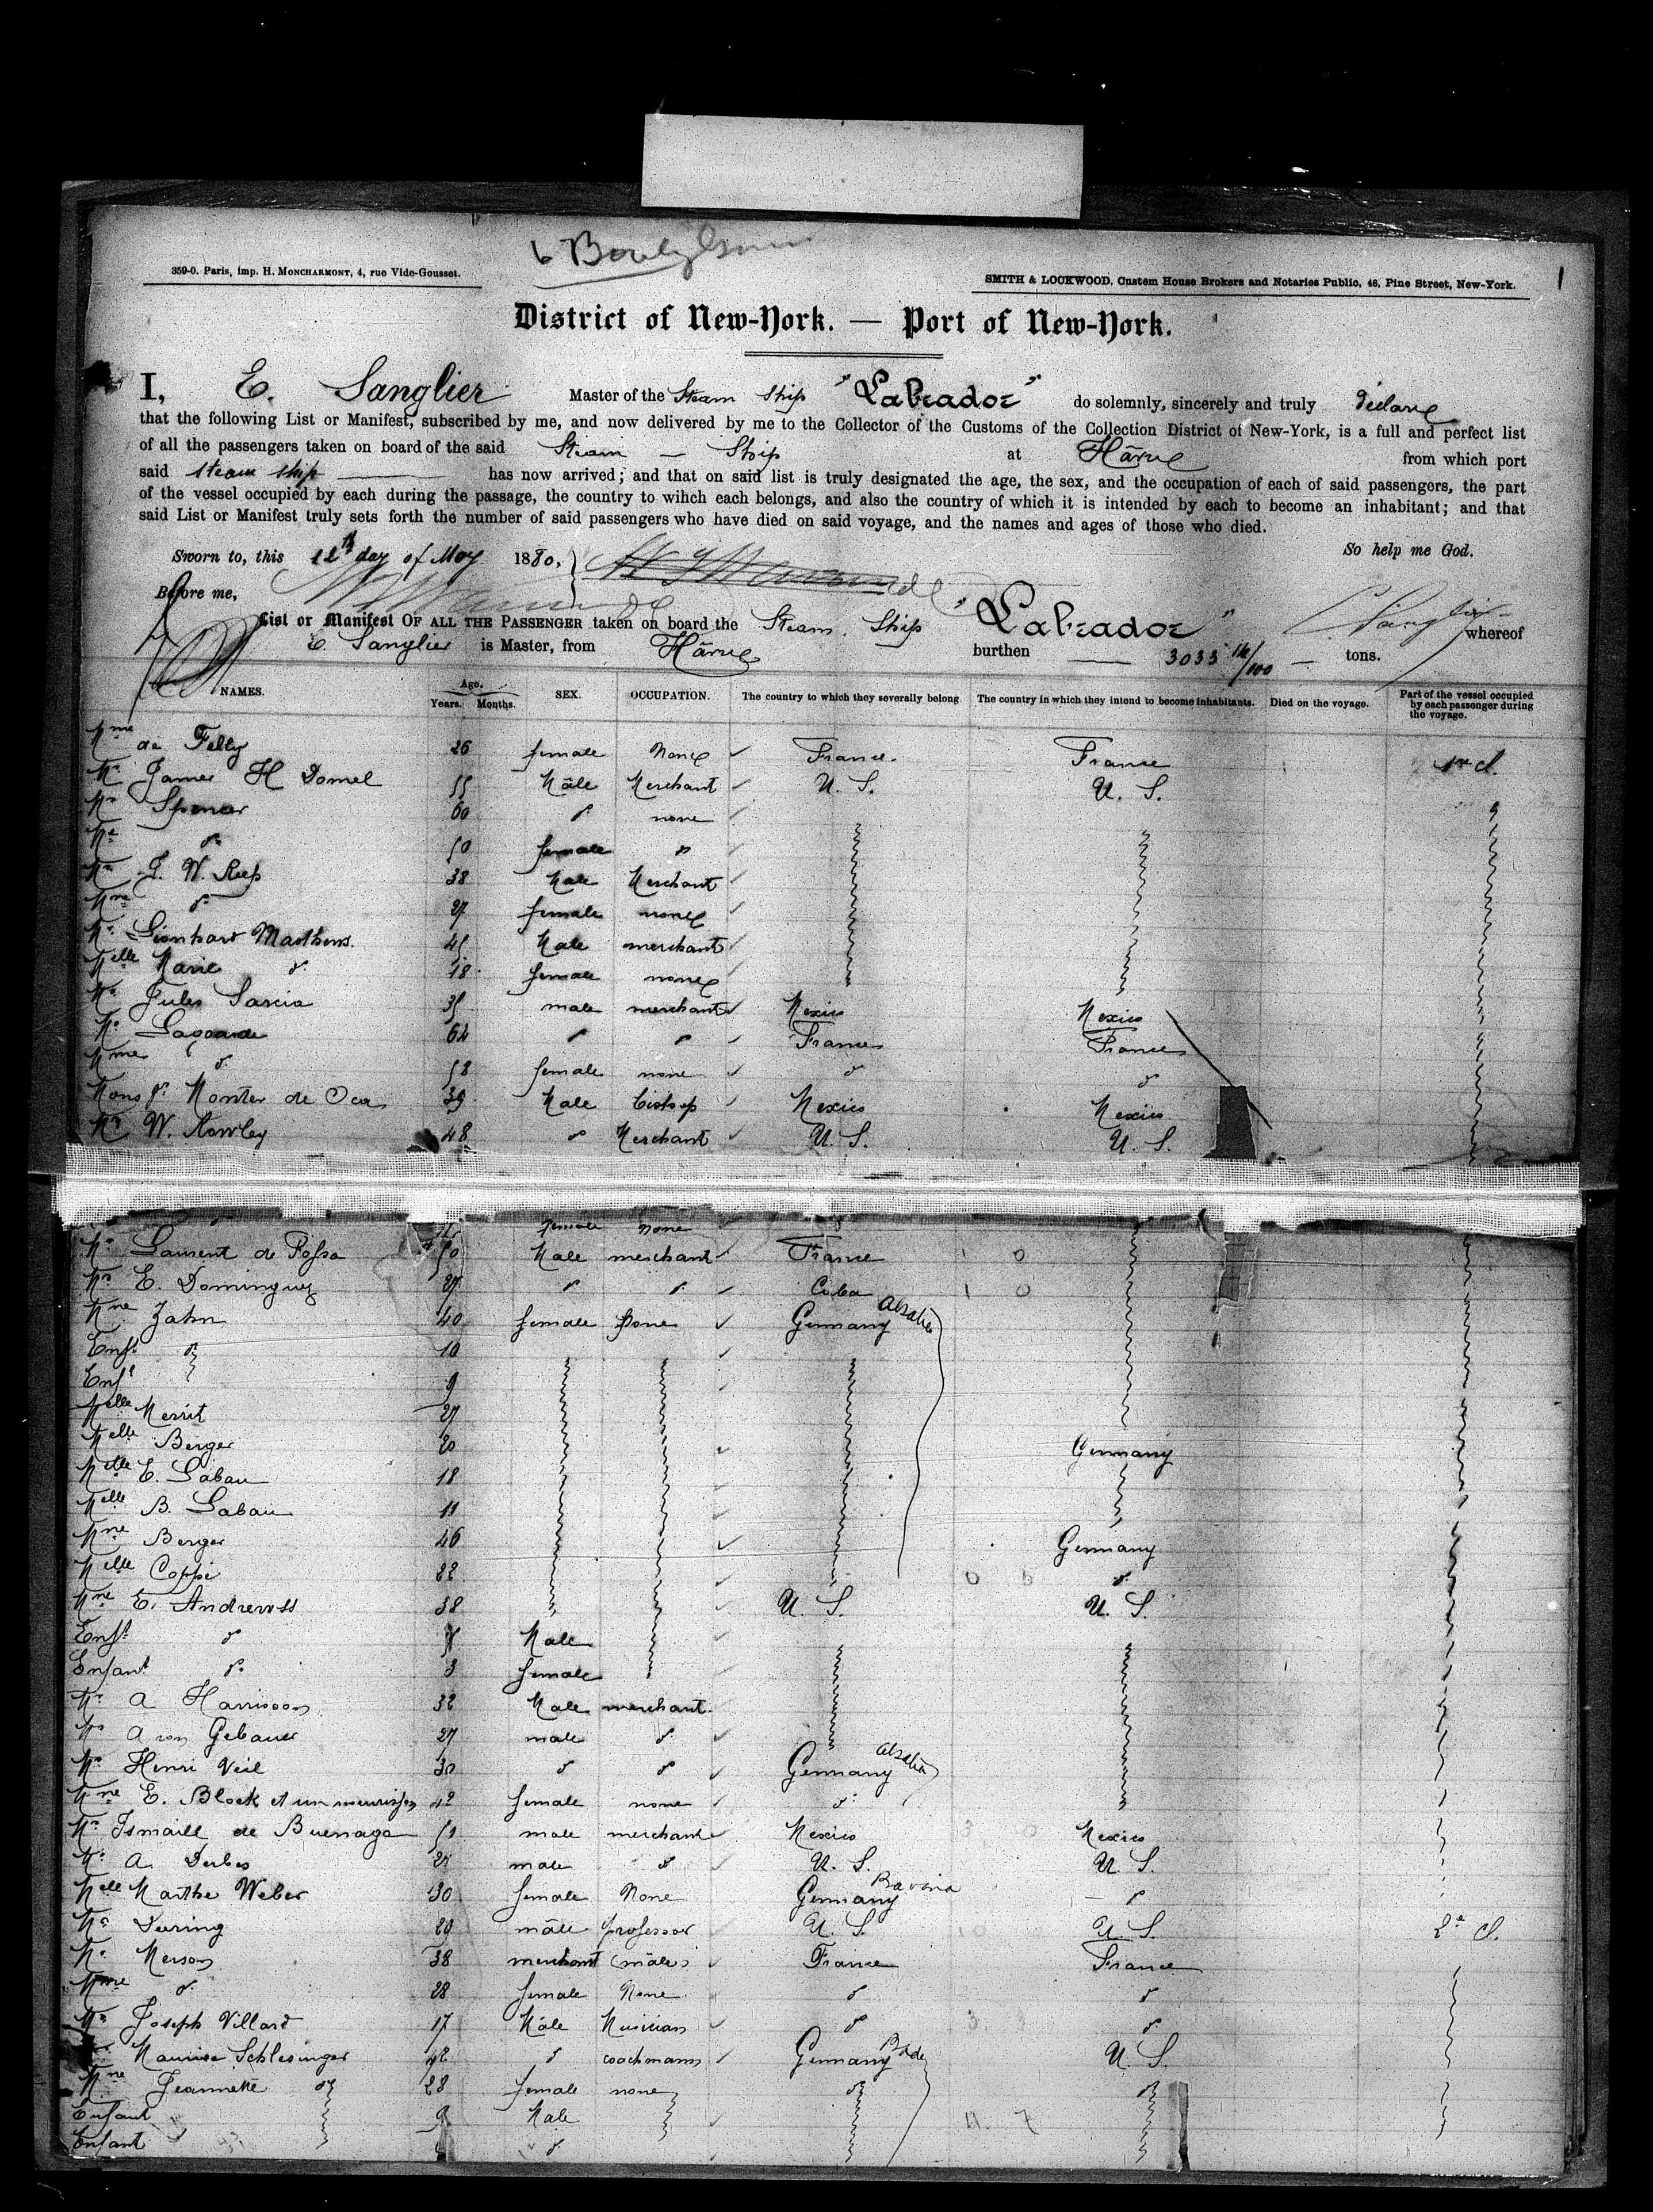 359-0. Paris, imp. H. MONCHARMONT, 4, rue Vide-Gousset.
SMITH & LOCKWOOD, Custom House Brokers and Notaries Public, 48, Pine Street, New-York.
1
District of New-York. — Port of New-York.
I, E. Sanglier Master of the Steam Ship "Labrador" do solemnly, sincerely and truly declare
that the following List or Manifest, subscribed by me, and now delivered by me to the Collector of the Customs of the Collection District of New-York, is a full and perfect list
of all the passengers taken on board of the said Steam - Ship at Hâvre from which port
said steam ship has now arrived; and that on said list is truly designated the age, the sex, and the occupation of each of said passengers, the part
of the vessel occupied by each during the passage, the country to wihch each belongs, and also the country of which it is intended by each to become an inhabitant; and that
said List or Manifest truly sets forth the number of said passengers who have died on said voyage, and the names and ages of those who died.
Sworn to, this 12th day of May 1880, So help me God.
Before me,
List or Manifest OF ALL THE PASSENGER taken on board the Steam Ship "Labrador" whereof
E. Sanglier is Master, from Hâvre burthen 3033 16/100 tons.
NAMES. Age. Years. Months. SEX. OCCUPATION. The country to which they severally belong The country in which they intend to become inhabitants. Died on the voyage. Part of the vessel occupied by each passenger during the voyage.
Mme de Felly 26 female None France France 1re cl.
Mr James H Domel 55 Mâle Merchant U. S. U. S.
Mr Spencer 60 do none
do 50 female do
Mr J. W. Rees 38 Male Merchant
Mme do 27 female none
Mr Lionhart Matthews. 45 Male merchant
Melle Marie do 18 female none
Mr Jules Sarcia 35 male merchant Mexico Mexico
Mr Lagarde 64 do do France France
Mme do 58 female none do do
Monsgr Montes de Oca 39 Male bishop Mexico Mexico
Mr W. Rowley 48 do Merchant U. S. U. S.
female none
Mr Laurent de Possa 50 Male merchant France
Mr E. Dominguez 27 do do Cuba
Mme Zahn 40 female none Germany Alsatia
Enft do 10
Enft 9
Melle Merrit 27
Melle Berger 20 Germany
Melle E. Labau 18
Melle B. Labau 11
Mme Berger 46 Germany
Melle Coppi 22 do
Mme E. Andrewss 38 U. S. U. S.
Enft do Male
Enfant do 3 female
Mr A Harrisson 32 Male merchant
Mr A von Gebauer 27 male do
Mr Henri Veil 30 do do Germany Alsatia
Mme E. Block et un nourisson 42 female none do
Mr Ismaile de Buenaga 51 male merchant Mexico Mexico
Mr A. Derbes male do U. S. U. S.
Melle Marthe Weber 30 female None Germany Bavaria do
Mr Deering 29 mâle professor U. S. U. S. 2e cl.
Mr Merson 38 merchant (mâle) France France
Mme do 28 female None do do
Mr Joseph Villard 17 Mâle Musician do do
Maurice Schlesinger 42 do coachmann Germany Bade U. S.
Mme Jeannette do 28 female none do do
Enfant 9 Male
Enfant do